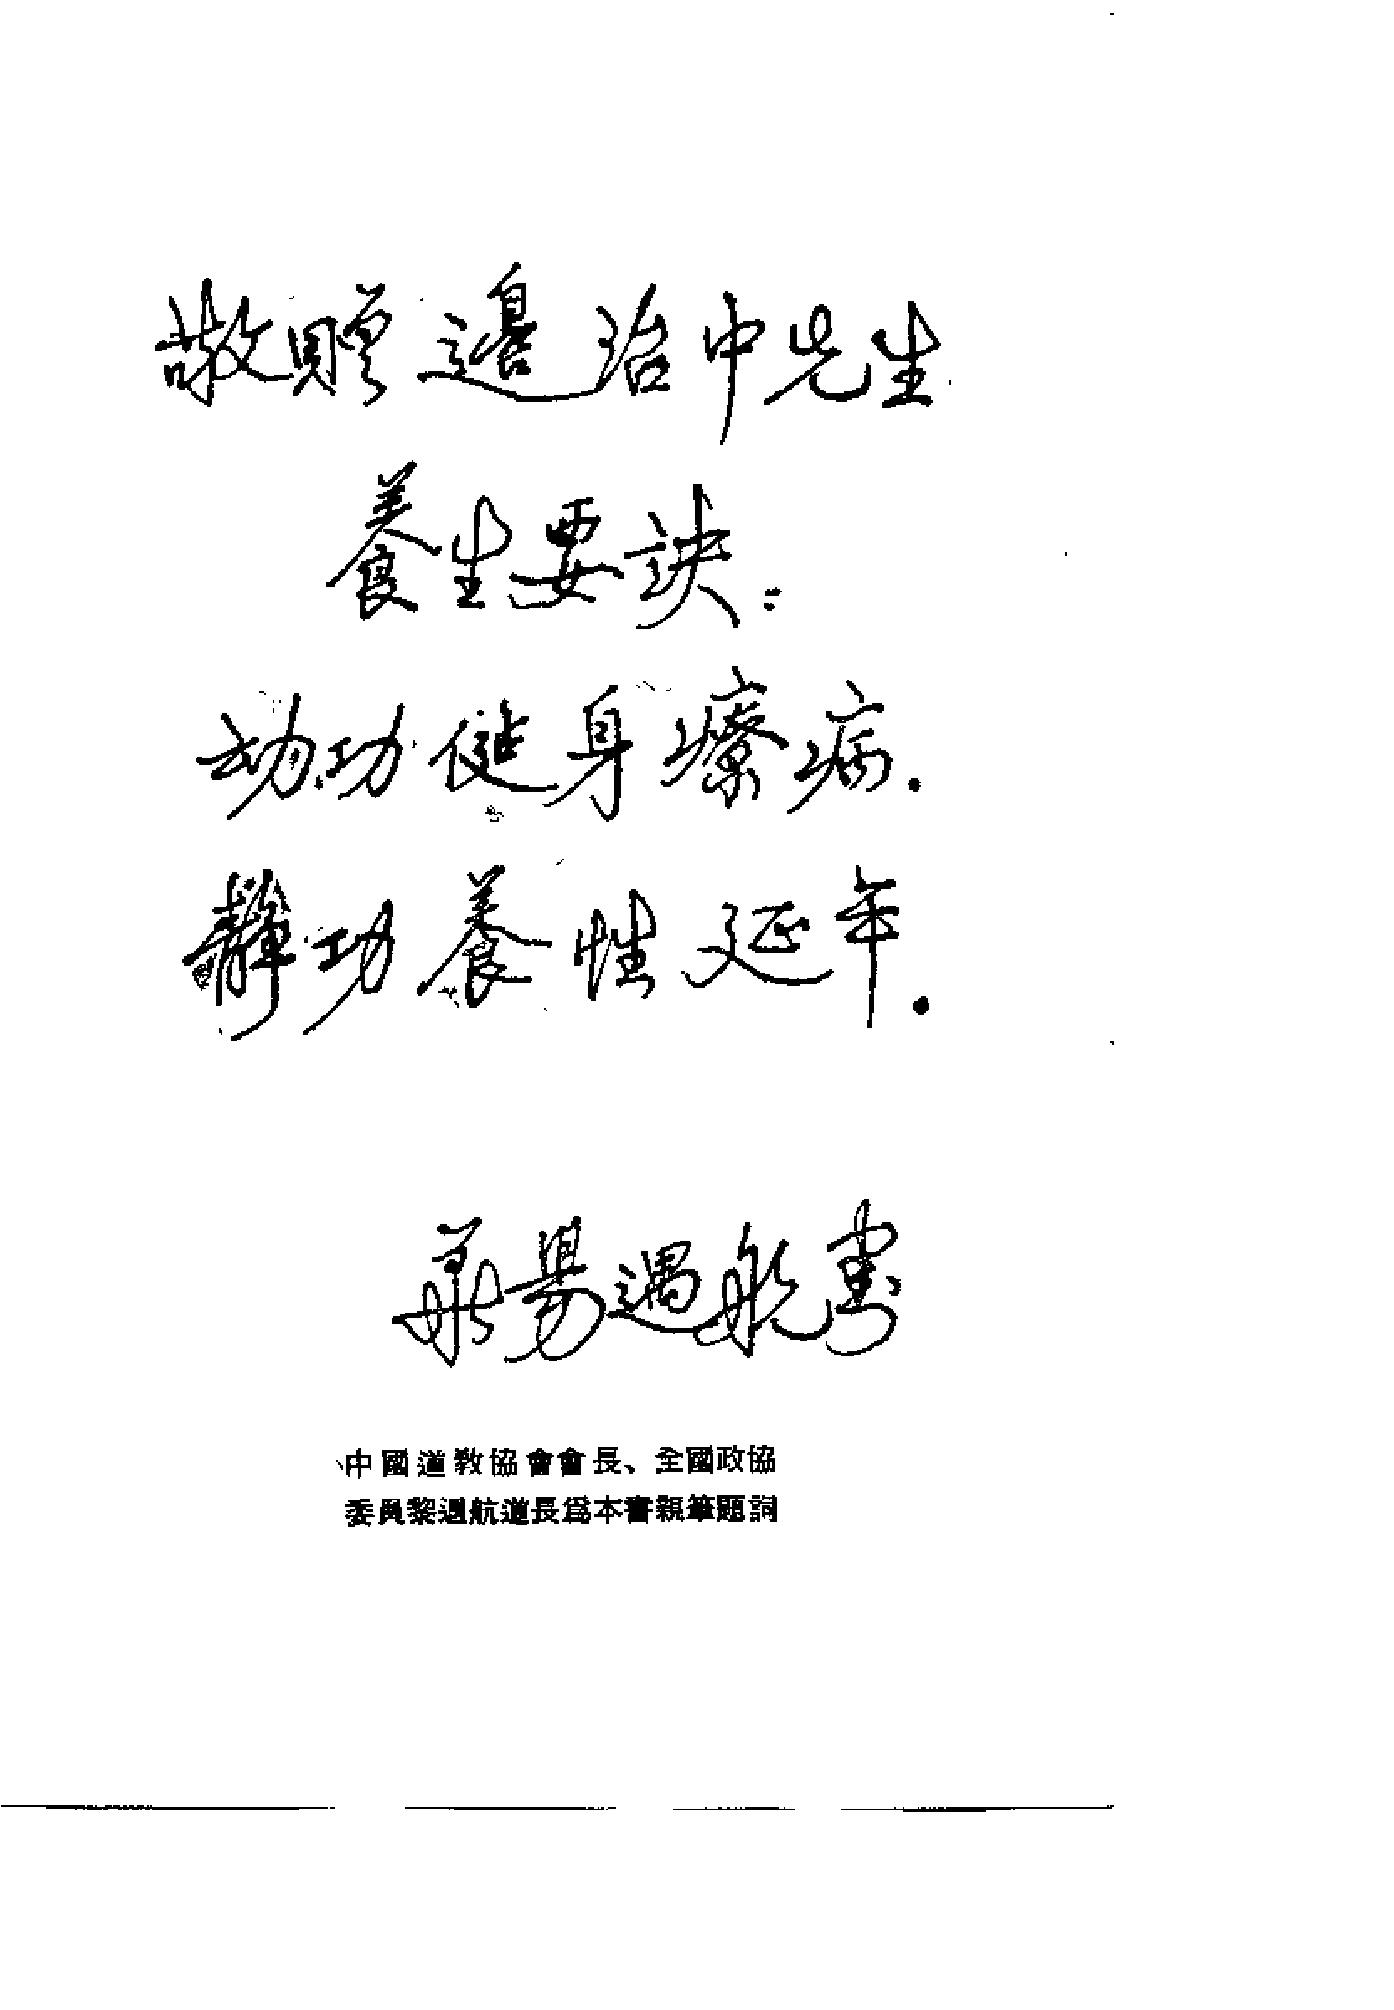 敬贈邊治中先生
養生要訣：
动功健身療病．
靜功養性延年．
黎遇航書
中國道教協會會長、全國政協
委員黎遇航道長爲本書親筆題詞